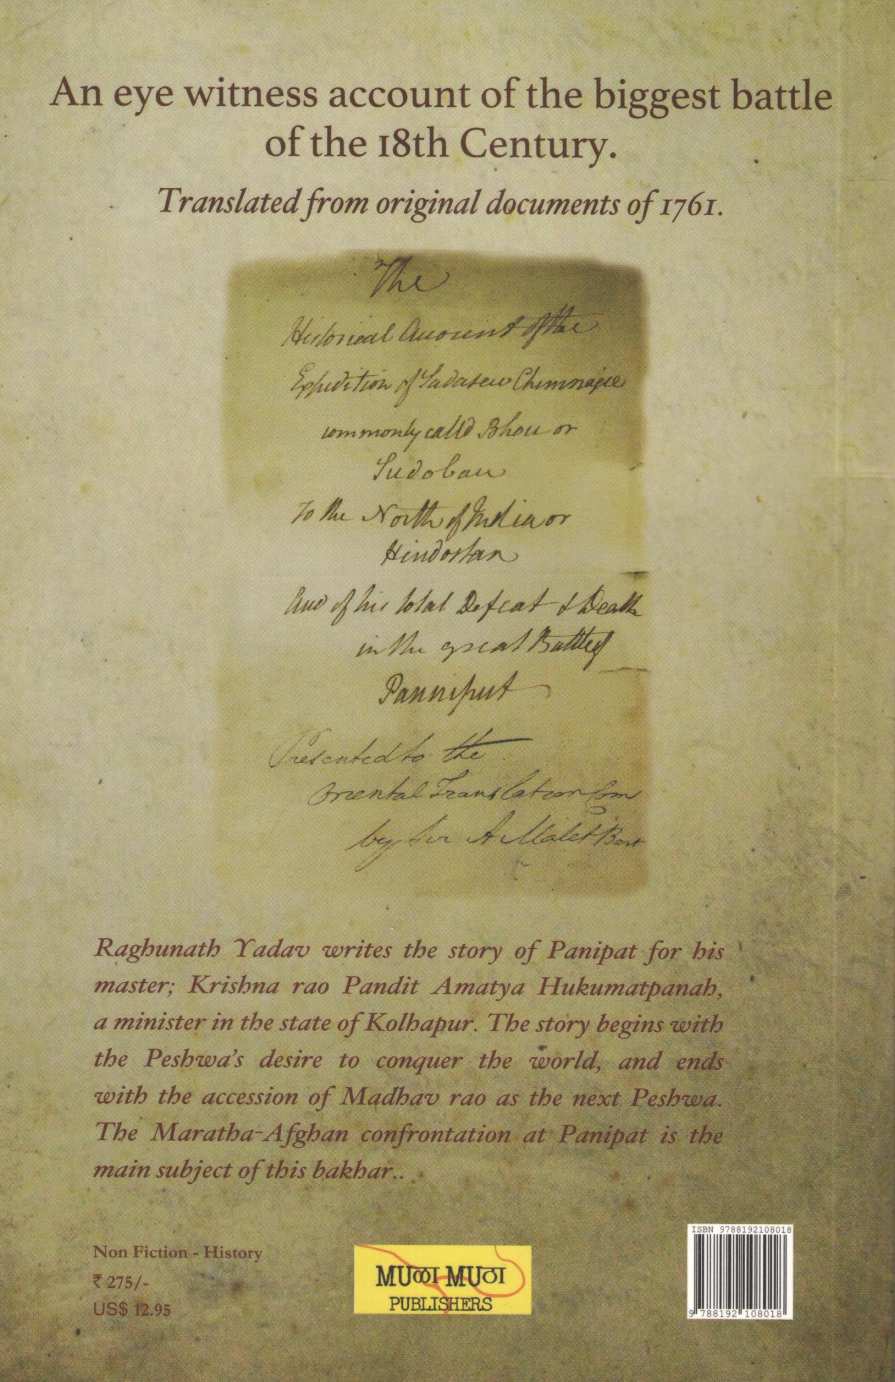 An eye witness account of the biggest battle
of the 18th Century.
Translated from original documents of 1761.
The
Historical Account of the
Expedition of Sadasew Chimnajee
commonly called Bhou or
Sudobau
To the North of India or
Hindostan
And of his total Defeat & Death
in the great Battle of
Panniput
Presented to the
Oriental Translation Com
by Sir A Malet Bart
Raghunath Yadav writes the story of Panipat for his
master; Krishna rao Pandit Amatya Hukumatpanah,
a minister in the state of Kolhapur. The story begins with
the Peshwa's desire to conquer the world, and ends
with the accession of Madhav rao as the next Peshwa.
The Maratha-Afghan confrontation at Panipat is the
main subject of this bakhar..
Non Fiction - History
₹ 275/-
US$ 12.95
MUळा MUठा
PUBLISHERS
ISBN 9788192108018
9 788192 108018